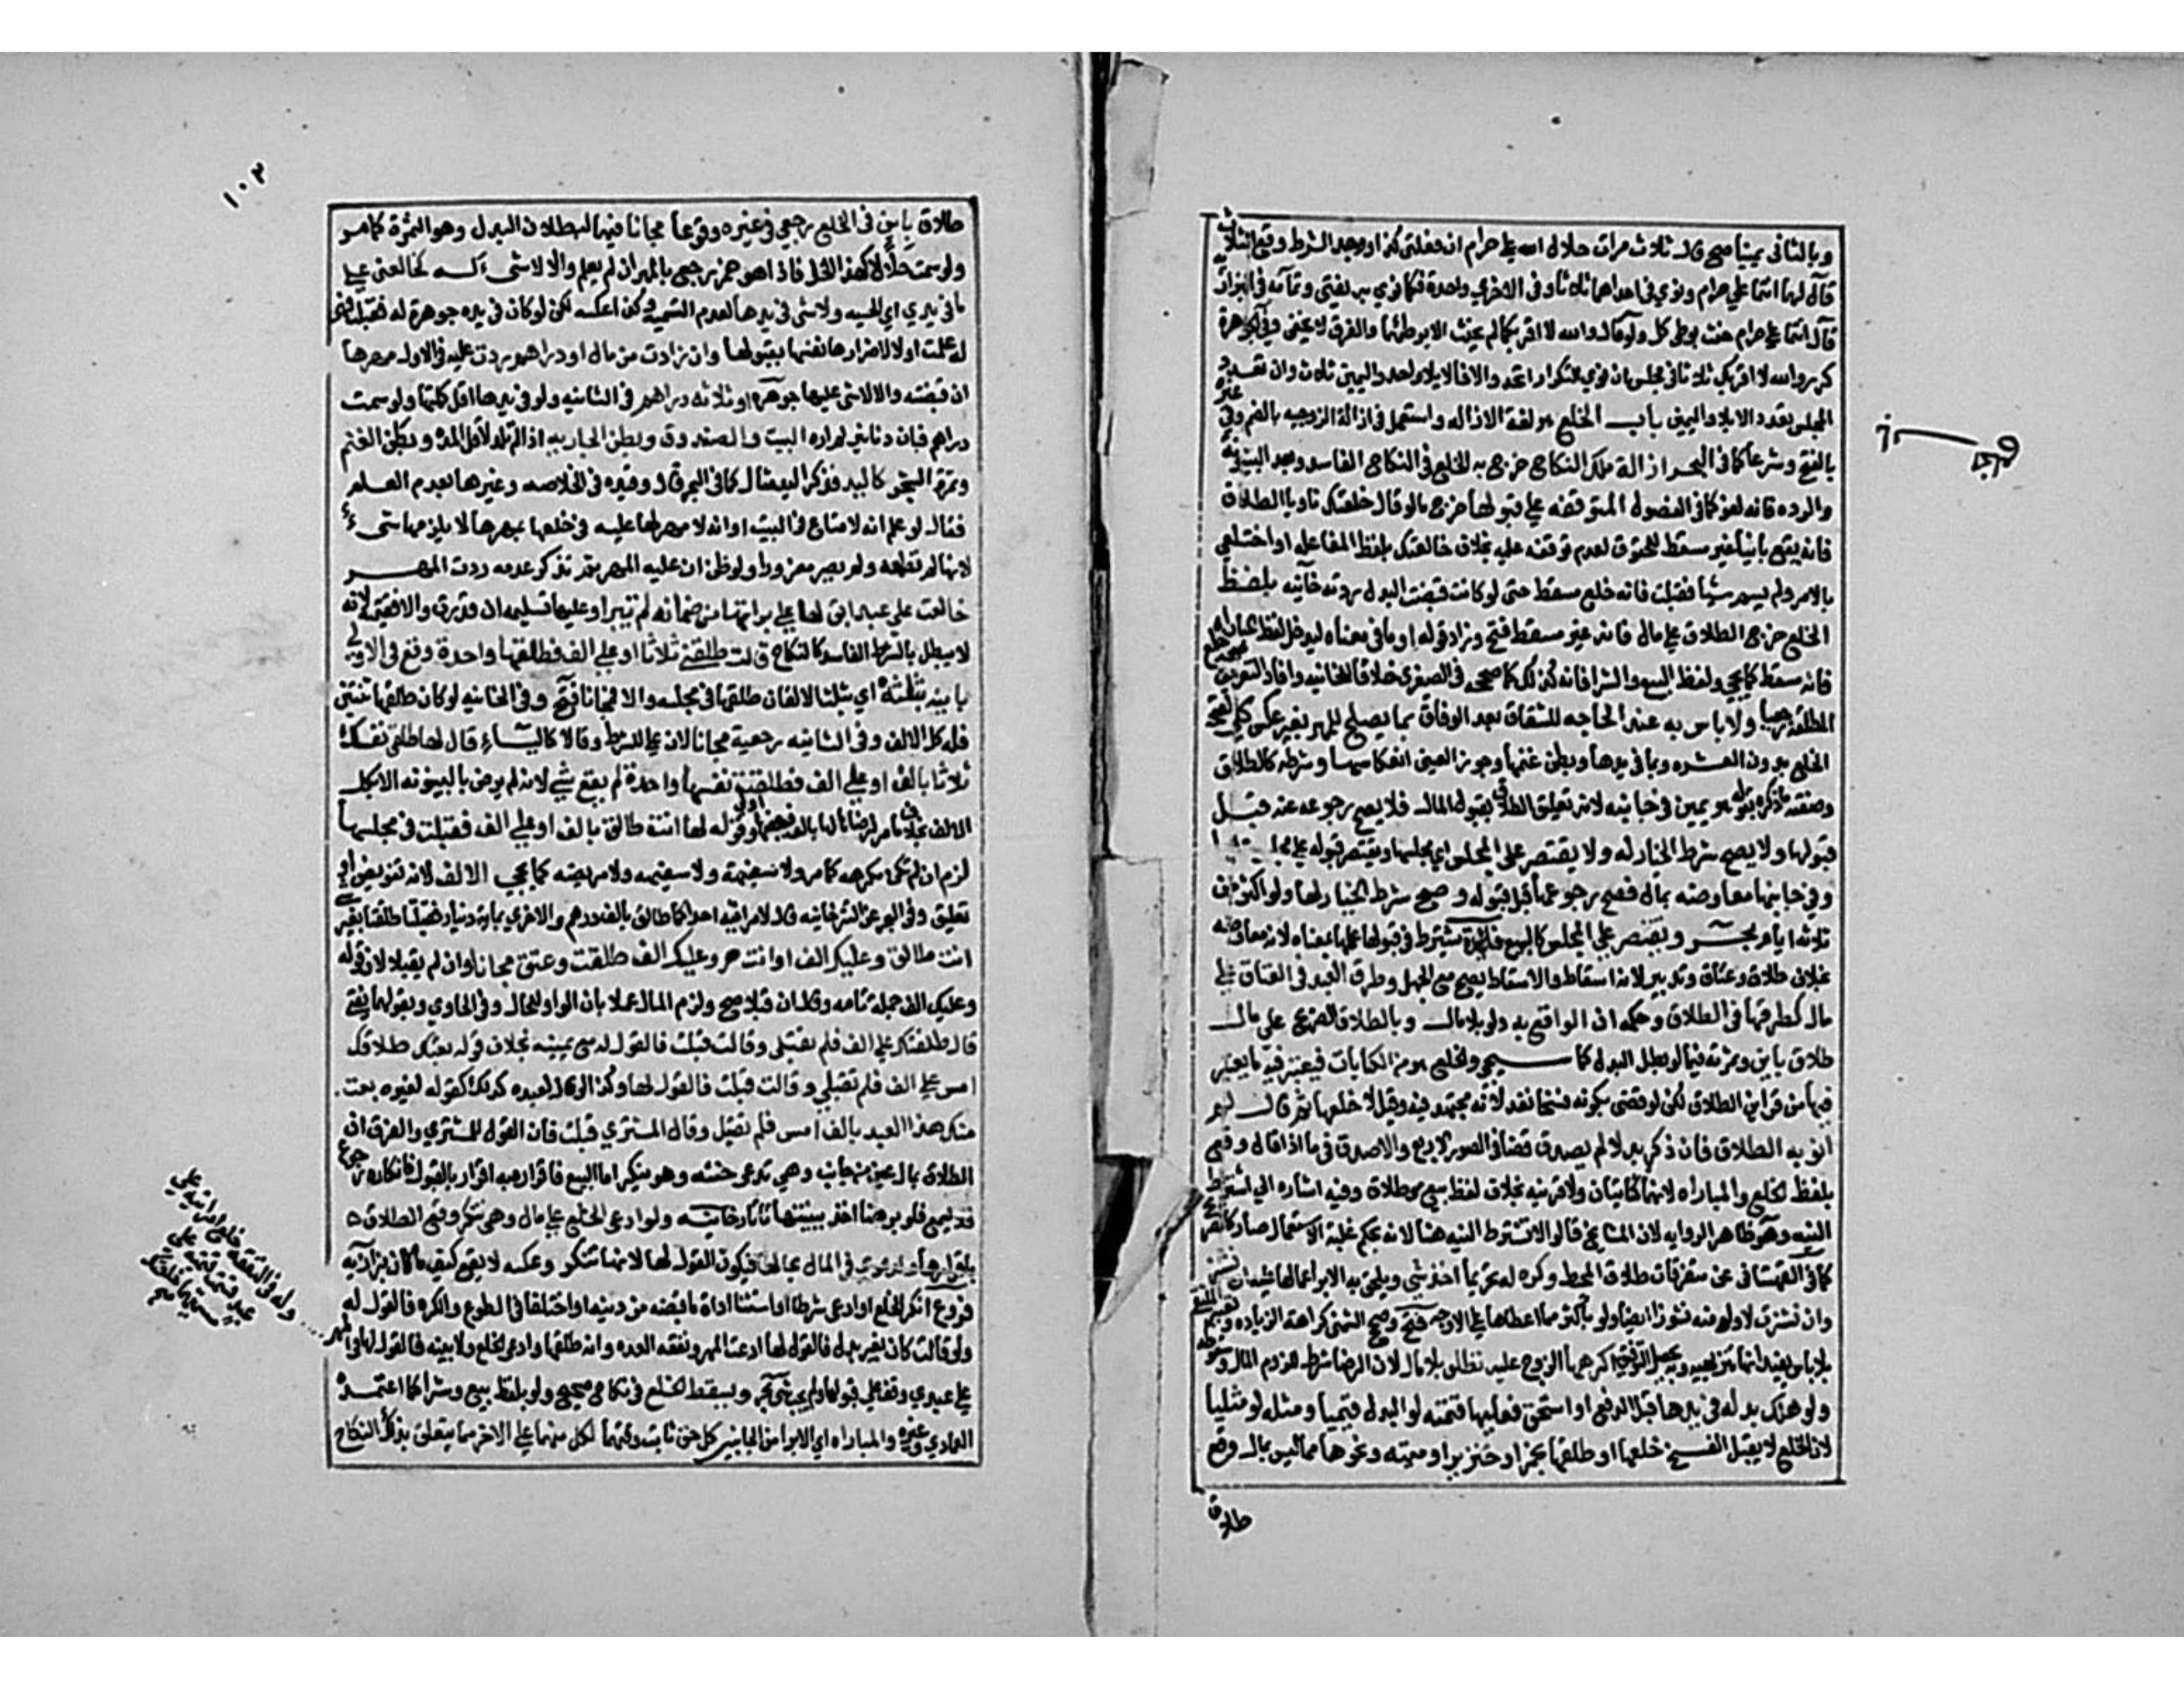 وبالثاني يمينا صح قال ثلاث مرات حلال الله علي حرام ان فعلت كذا ووجد الشرط وقع الثلاث
قال لهما انتما علي حرام ونوى في احداهما ثلاثا وفي الاخرى واحدة فكما نوى به يفتى وتمامه في البزازية
قال انتما علي حرام حنث بوطئ كل ولو قال والله لا اقربكما لم يحنث الا بوطئهما والفرق لا يخفى وفي الجوهرة
كرر والله لا اقربك ثلاثا في مجلس ان نوى التكرار اتحد والا فالايلاء واحد واليمين ثلاث وان تعدد
المجلس تعدد الايلاء واليمين باب الخلع هو لغة الازاله واستعمل في ازالة الزوجيه بالضم وفي غيره
بالفتح وشرعا كما في البحر ازالة ملك النكاح خرج به الخلع في النكاح الفاسد وبعد البينونة
والرده فانه لغو كما في الفصول المتوقفه علي قبولها خرج ما لو قال خلعتك ناويا الطلاق
فانه يقع باينا غير مسقط للحقوق لعدم توقفه عليه بخلاف خالعتك بلفظ المفاعله او اختلعي
بالامر ولم يسم شيئا فقبلت فانه خلع مسقط حتى لو كانت قبضت البدل ردته خانيه بلفظ
الخلع خرج الطلاق علي مال فانه غير مسقط فتح وزاد قوله او ما في معناه ليدخل لفظ المباراه
فانه مسقط كما يجي ولفظ البيع والشرا فانه كذلك كما صححه في الصغرى خلافا للخانيه وافاد التعريف صحة خلع
المطلقة رجعيا ولا باس به عند الحاجه للشقاق بعد الوفاق بما يصلح للمهر بغير عكس كلي لصحة
الخلع بدون العشره وبما في يدها وبطن غنمها وجوز العيني انعكاسها وشرطه كالطلاق
وصفته ما ذكره بقوله هو يمين في جانبه لانه تعليق الطلاق بقبول المال فلا يصح رجوعه عنه قبل
قبولها ولا يصح شرط الخيار له ولا يقتصر على المجلس اي مجلسها ويقتصر قبولها علي مجلس علمها
وفي جانبها معاوضه بمال فصح رجوعها قبل قبوله وصح شرط الخيار لها ولو اكثر من
ثلاثه ايام بحر ويقتصر علي المجلس كالبيع فائدة يشترط في قبولها علمها بمعناه لانه معاوضه
بخلاف طلاق وعتاق وتدبير لانه اسقاط والاسقاط يصح مع الجهل وطرف العبد في العتاق علي
مال كطرفها في الطلاق وحكمه ان الواقع به ولو بلا مال وبالطلاق الصريح علي مال
طلاق باين وثمرته فيما لو بطل البدل كما سيجي والخلع هو من الكنايات فيعتبر فيه ما يعتبر
فيها من قراين الطلاق لكن لو قضى بكونه فسخا نفذ لانه مجتهد فيه وقيل لا خلعها ثم قال لم
انو به الطلاق فان ذكر بدلا لم يصدق قضا في الصور الاربع والا صدق في ما اذا قاله وقع
بلفظ الخلع والمباراه لانهما كنايتان ولا قرينه بخلاف لفظ بيع وطلاق وفيه اشاره الي اشتراط
النيه وهو ظاهر الروايه لان المشايخ قالوا لا تشترط النيه هنا لانه بحكم غلبة الاستعمال صار كالصريح
كما في القهستاني عن متفرقات طلاق المحيط وكره له تحريما اخذ شي ويلحق به الابرا عما لها عليه ان نشز
وان نشزت لا ولو منه نشوز ايضا ولو باكثر مما اعطاها علي الاوجه فتح وصح الشمني كراهة الزياده وتعبير الملتقى
بلا باس يفيد انها تنزيهيه وبه يحصل التوفيق اكرهها الزوج عليه تطلق بلا مال لان الرضا شرط للزوم المال وسقوطه
ولو هلك بدله في يدها قبل الدفع او استحق فعليها قيمته لو البدل قيميا ومثله لو مثليا
لان الخلع لا يقبل الفسخ خلعها او طلقها بخمر او خنزير او ميته ونحوها مما ليس بمال وقع
طلاق
١٠٣
طلاق باين في الخلع رجعي في غيره وقوعا مجانا فيهما لبطلان البدل وهو الثمرة كما مر
ولو سمت حلالا كهذا الخل فاذا هو خمر رجع بالمهر ان لم يعلم والا لا شي له كخالعني علي
ما في يدي اي الحسيه ولا شي في يدها لعدم التسمية وكذا عكسه لكن لو كان في يده جوهرة له فقبلت فهي
له علمت اولا لاضرارها نفسها بقبولها وان زادت من مال او دراهم ردت عليه في الاول مهرها
ان قبضته والا لا شي عليها جوهره او ثلاثه دراهم في الثانيه ولو في يدها اقل كملتها ولو سمت
دراهم فبان دنانير لم اره البيت والصندوق وبطن الجاريه اذا لم تلد لاقل المدة وبطن الغنم
وثمرة الشجر كاليد فذكر اليد مثال كما في البحر قال وقيده في الخلاصه وغيرها بعدم العلم
فقال لو علم انه لا متاع في البيت او انه لا مهر لها عليه في خلعها بمهرها لا يلزمها شي
لانها لم تطمعه ولم يصر مغرورا ولو ظن ان عليه المهر ثم تذكر عدمه ردت المهر
خالعت علي عبد ابق لها علي براتها من ضمانه لم تبرا وعليها تسليمه ان قدرت والا قيمته لانه
لا يبطل بالشرط الفاسد كالنكاح قالت طلقني ثلاثا او علي الف فطلقها واحدة وقع في الاولى
باينه بثلثه اي بثلث الالف ان طلقها في مجلسه والا فمجانا فتح وفي الخانيه لو كان طلقها ثنتين
فله كل الالف وفي الثانيه رجعية مجانا لان علي للشرط وقالا كالباء قال لها طلقي نفسك
ثلاثا بالف او علي الف فطلقت نفسها واحدة لم يقع شي لانه لم يرض بالبينونه الا بكل
الالف بخلاف ما مر لرضاها بها بالف فببعضها اولى وقوله لها انت طالق بالف او علي الف فقبلت في مجلسها
لزم ان لم تكن مكرهه كما مر ولا سفيهة ولا مريضه كما يجي الالف لانه تفويض او
تعليق وفي البحر عن التترخانيه قال لامراتيه احداكما طالق بالف درهم والاخرى بماية دينار فقبلتا طلقتا بغير شي
انت طالق وعليك الف او انت حر وعليك الف طلقت وعتق مجانا وان لم يقبلا لان قوله
وعليك الف جملة تامه وقالا ان قبلا صح ولزم المال عملا بان الواو للحال وفي الحاوي وبقولهما يفتى
قال طلقتك علي الف فلم تقبلي وقالت قبلت فالقول له مع يمينه بخلاف قوله بعتك طلاقك
امس علي الف فلم تقبلي وقالت قبلت فالقول لها وكذا لو قال لعبده كذلك كقوله لغيره بعت
منك هذا العبد بالف امس فلم تقبل وقال المشتري قبلت فان القول للمشتري والفرق ان
الطلاق بمال يمين من جانبه وهي تدعي حنثه وهو ينكر اما البيع فاقراره به اقرار بالقبول فانكاره رجوع
فلا يسمع فلو برهنا اخذ ببينتها تاتارخانيه ولو ادعى الخلع علي مال وهي تنكر وقع الطلاق
باقراره والدعوى في المال بحالها فيكون القول لها لانها تنكر وعكسه لا يقع كيف ما كان بزازيه
فروع انكر الخلع او ادعى شرطا او استثنا او ان ما قبضه من دينه او اختلفا في الطوع والكره فالقول له
ولو قالت كان بغير بدل فالقول لها ادعت المهر ونفقة العده وانه طلقها وادعى الخلع ولا بينه فالقول لها في المهر
وله في النفقه
علي عبدي وقف علي قبولها ولم يجب شي بحر ويسقط الخلع في نكاح صحيح ولو بلفظ بيع وشرا كما اعتمده
العمادي وغيره والمباراه اي الابرا من الجانبين كل حق ثابت وقتهما لكل منهما علي الاخر مما يتعلق بذلك النكاح